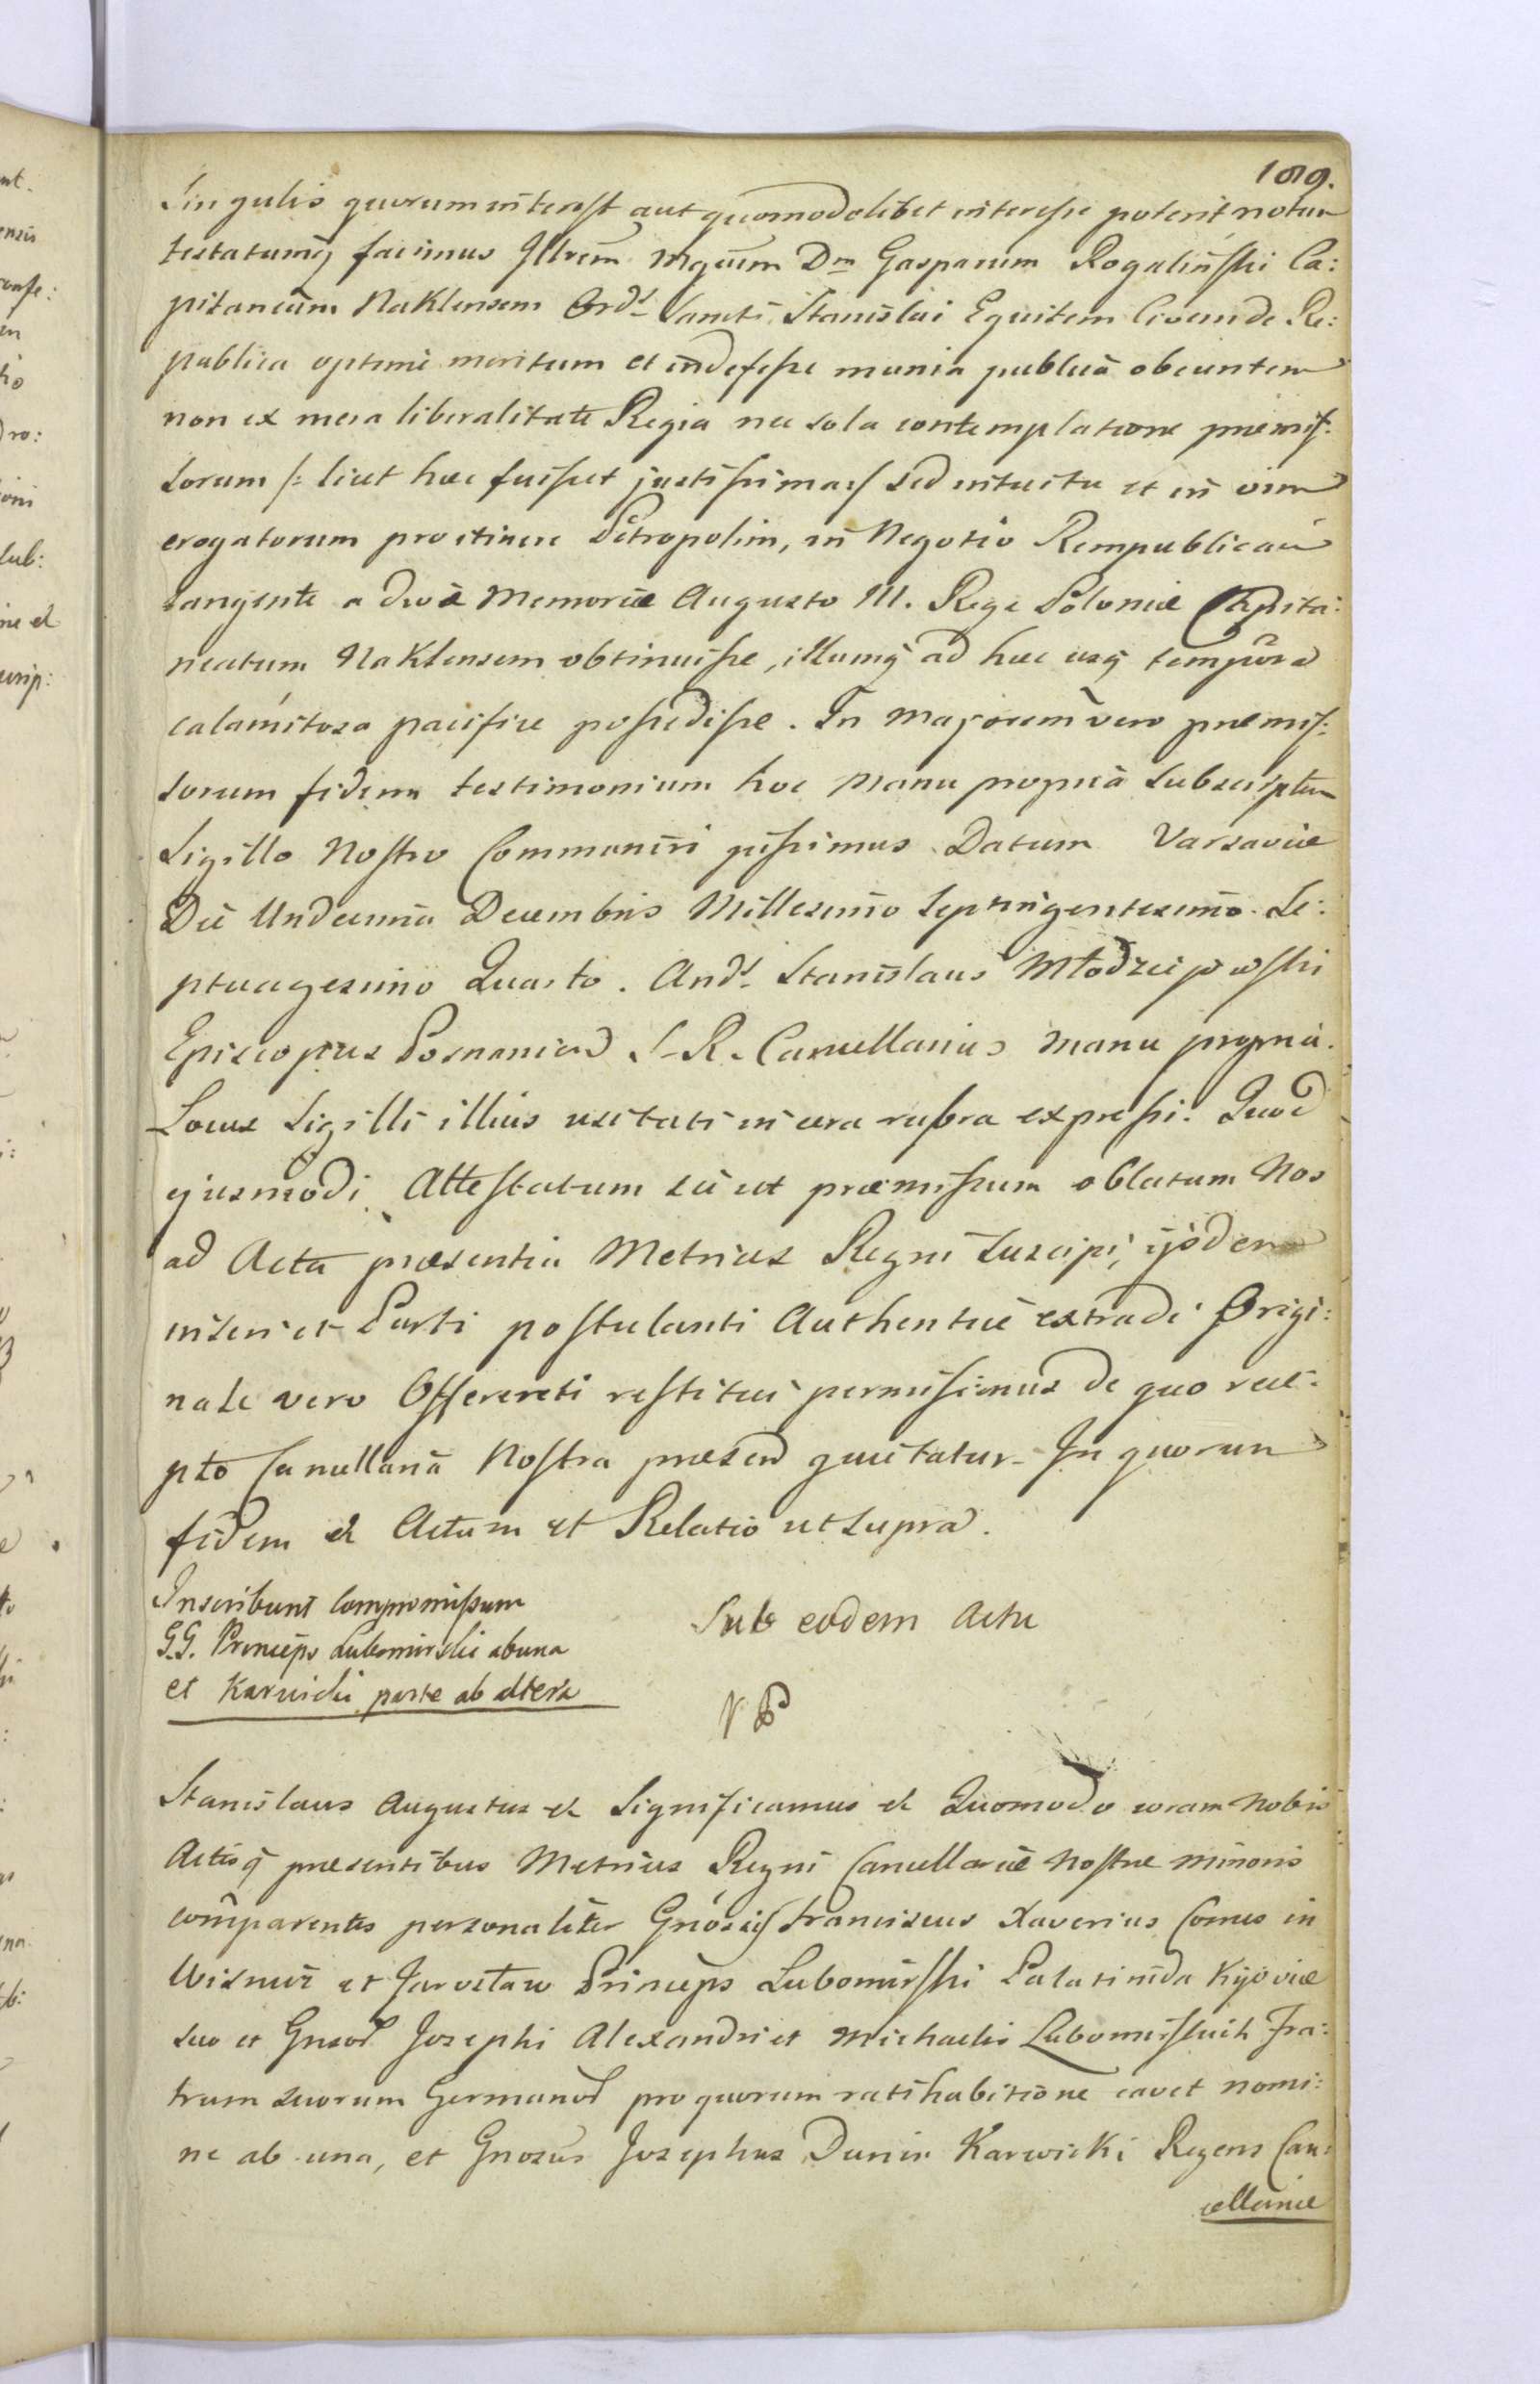 189.
Singulis quorum interest aut quomodolibet interesse poterit notum
testatumq̃ facimus Illrem Mgcum Dnm Gasparum Rogaliński Ca:
pitaneum Naklensem Ords Sancti Stanislai Equitem Civem de Re:
publica optime meritum et indefesse munia publica obeuntem
non ex mera liberalitate Regia nec sola contemplatione præmis:
sorum /: licet hæc fuisset justissima :/ sed intuitu et in vim
erogatorum pro itinere Petropolim, in Negotio Rempublicam
tangente a divæ Memoriæ Augusto III. Rege Poloniæ Capita:
neatum Naklensem obtinuisse, illumq̃ ad hæc usq̃ tempora
calamitosa pacifice possedisse. In majorem vero præmis:
sorum fidem testimonium hoc manu propria subscriptum
Sigillo Nostro Communiri jussimus. Datum Varsaviæ
Die Undecima Decembris Millesimo Septingentesimo Se:
ptuagesimo Quarto. Ands Stanislaus Młodzieiowski
Episcopus Posnaniens S. R. Cancellarius manu propria.
Locus Sigilli illius usitati in cera rubra expressi. Quod
ejusmodi Attestatum sic ut præmissum oblatum Nos
ad Acta præsentia Metrices Regni suscipi, ijsdem
inseri et Parti postulanti Authentice extradi Origi:
nale vero Offerenti restitui permisimus de quo rece:
pto Cancellaria Nostra præsens quietatur. In quorum
fidem et Actum et Relatio ut supra.
Inscribunt Compromissum
G.G. Princeps Lubomirski ab una
et Karwicki parte ab altera
Sub eodem Actu
Stanislaus Augustus et Significamus et Quomodo coram Nobis
Actisq̃ præsentibus Metrices Regni Cancellariæ Nostræ minoris
comparentes personaliter Gnosus Franciscus Xaverius Comes in
Wisnicz et Jarosław Princeps Lubomirski Palatinida Kijoviæ
suo et Gnsor Josephi Alexandri et Michaelis Lubomirskich Fra:
trum suorum Germanor pro quorum ratihabitione cavet nomi:
ne ab una, et Gnosus Josephus Dunin Karwicki Regens Can:
cellariæ